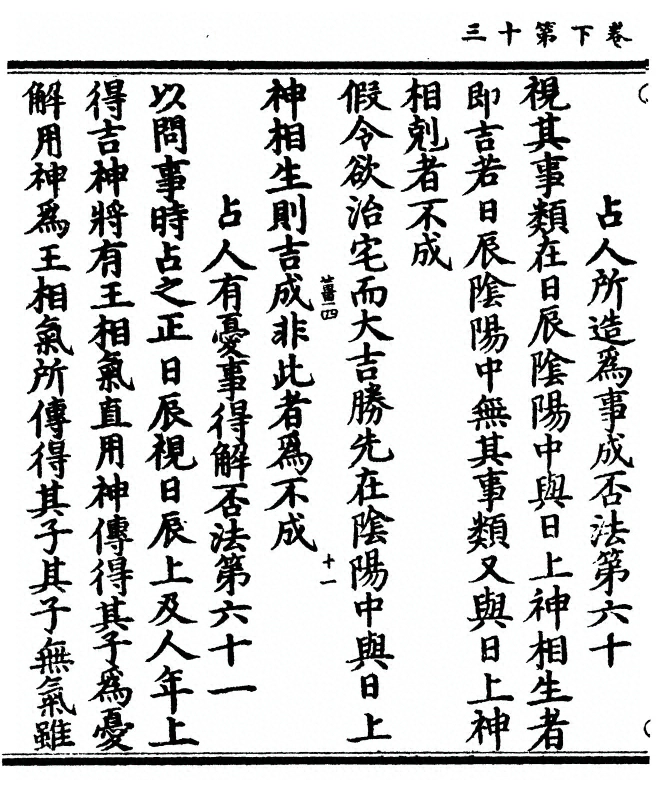 卷下第十三
占人所造爲事成否法第六十
視其事類在日辰陰陽中與日上神相生者
即吉若日辰陰陽中無其事類又與日上神
相剋者不成
假令欲治宅而大吉勝先在陰陽中與日上
四 十一
神相生則吉成非此者爲不成
占人有憂事得解否法第六十一
以問事時占之正日辰視日辰上及人年上
得吉神將有王相氣直用神傳得其子爲憂
解用神爲王相氣所傳得其子其子無氣雖